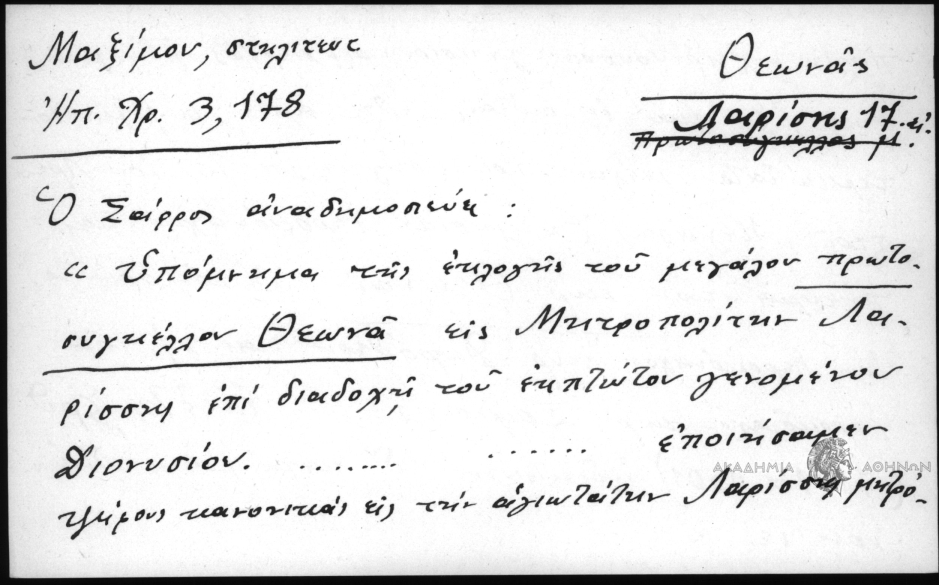 Μαξίμου, στηλιτευτ
Ἠπ. Χρ. 3, 178
Θεωνᾶς
Λαρίσης 17.
Πρωτοσύγκελλος μ.
Ὁ Σάρρος ἀναδημοσιεύει :
« Ὑπόμνημα τῆς ἐκλογῆς τοῦ μεγάλου πρωτο-
συγκέλλου Θεωνᾶ εἰς Μητροπολίτην Λα-
ρίσσης ἐπὶ διαδοχῇ τοῦ ἐκπτώτου γενομένου
Διονυσίου. ........ ...... ἐποιήσαμεν
ψήφους κανονικάς εἰς τὴν ἁγιωτάτην Λαρίσσης μητρό-
ΑΚΑΔΗΜΙΑ ΑΘΗΝΩΝ